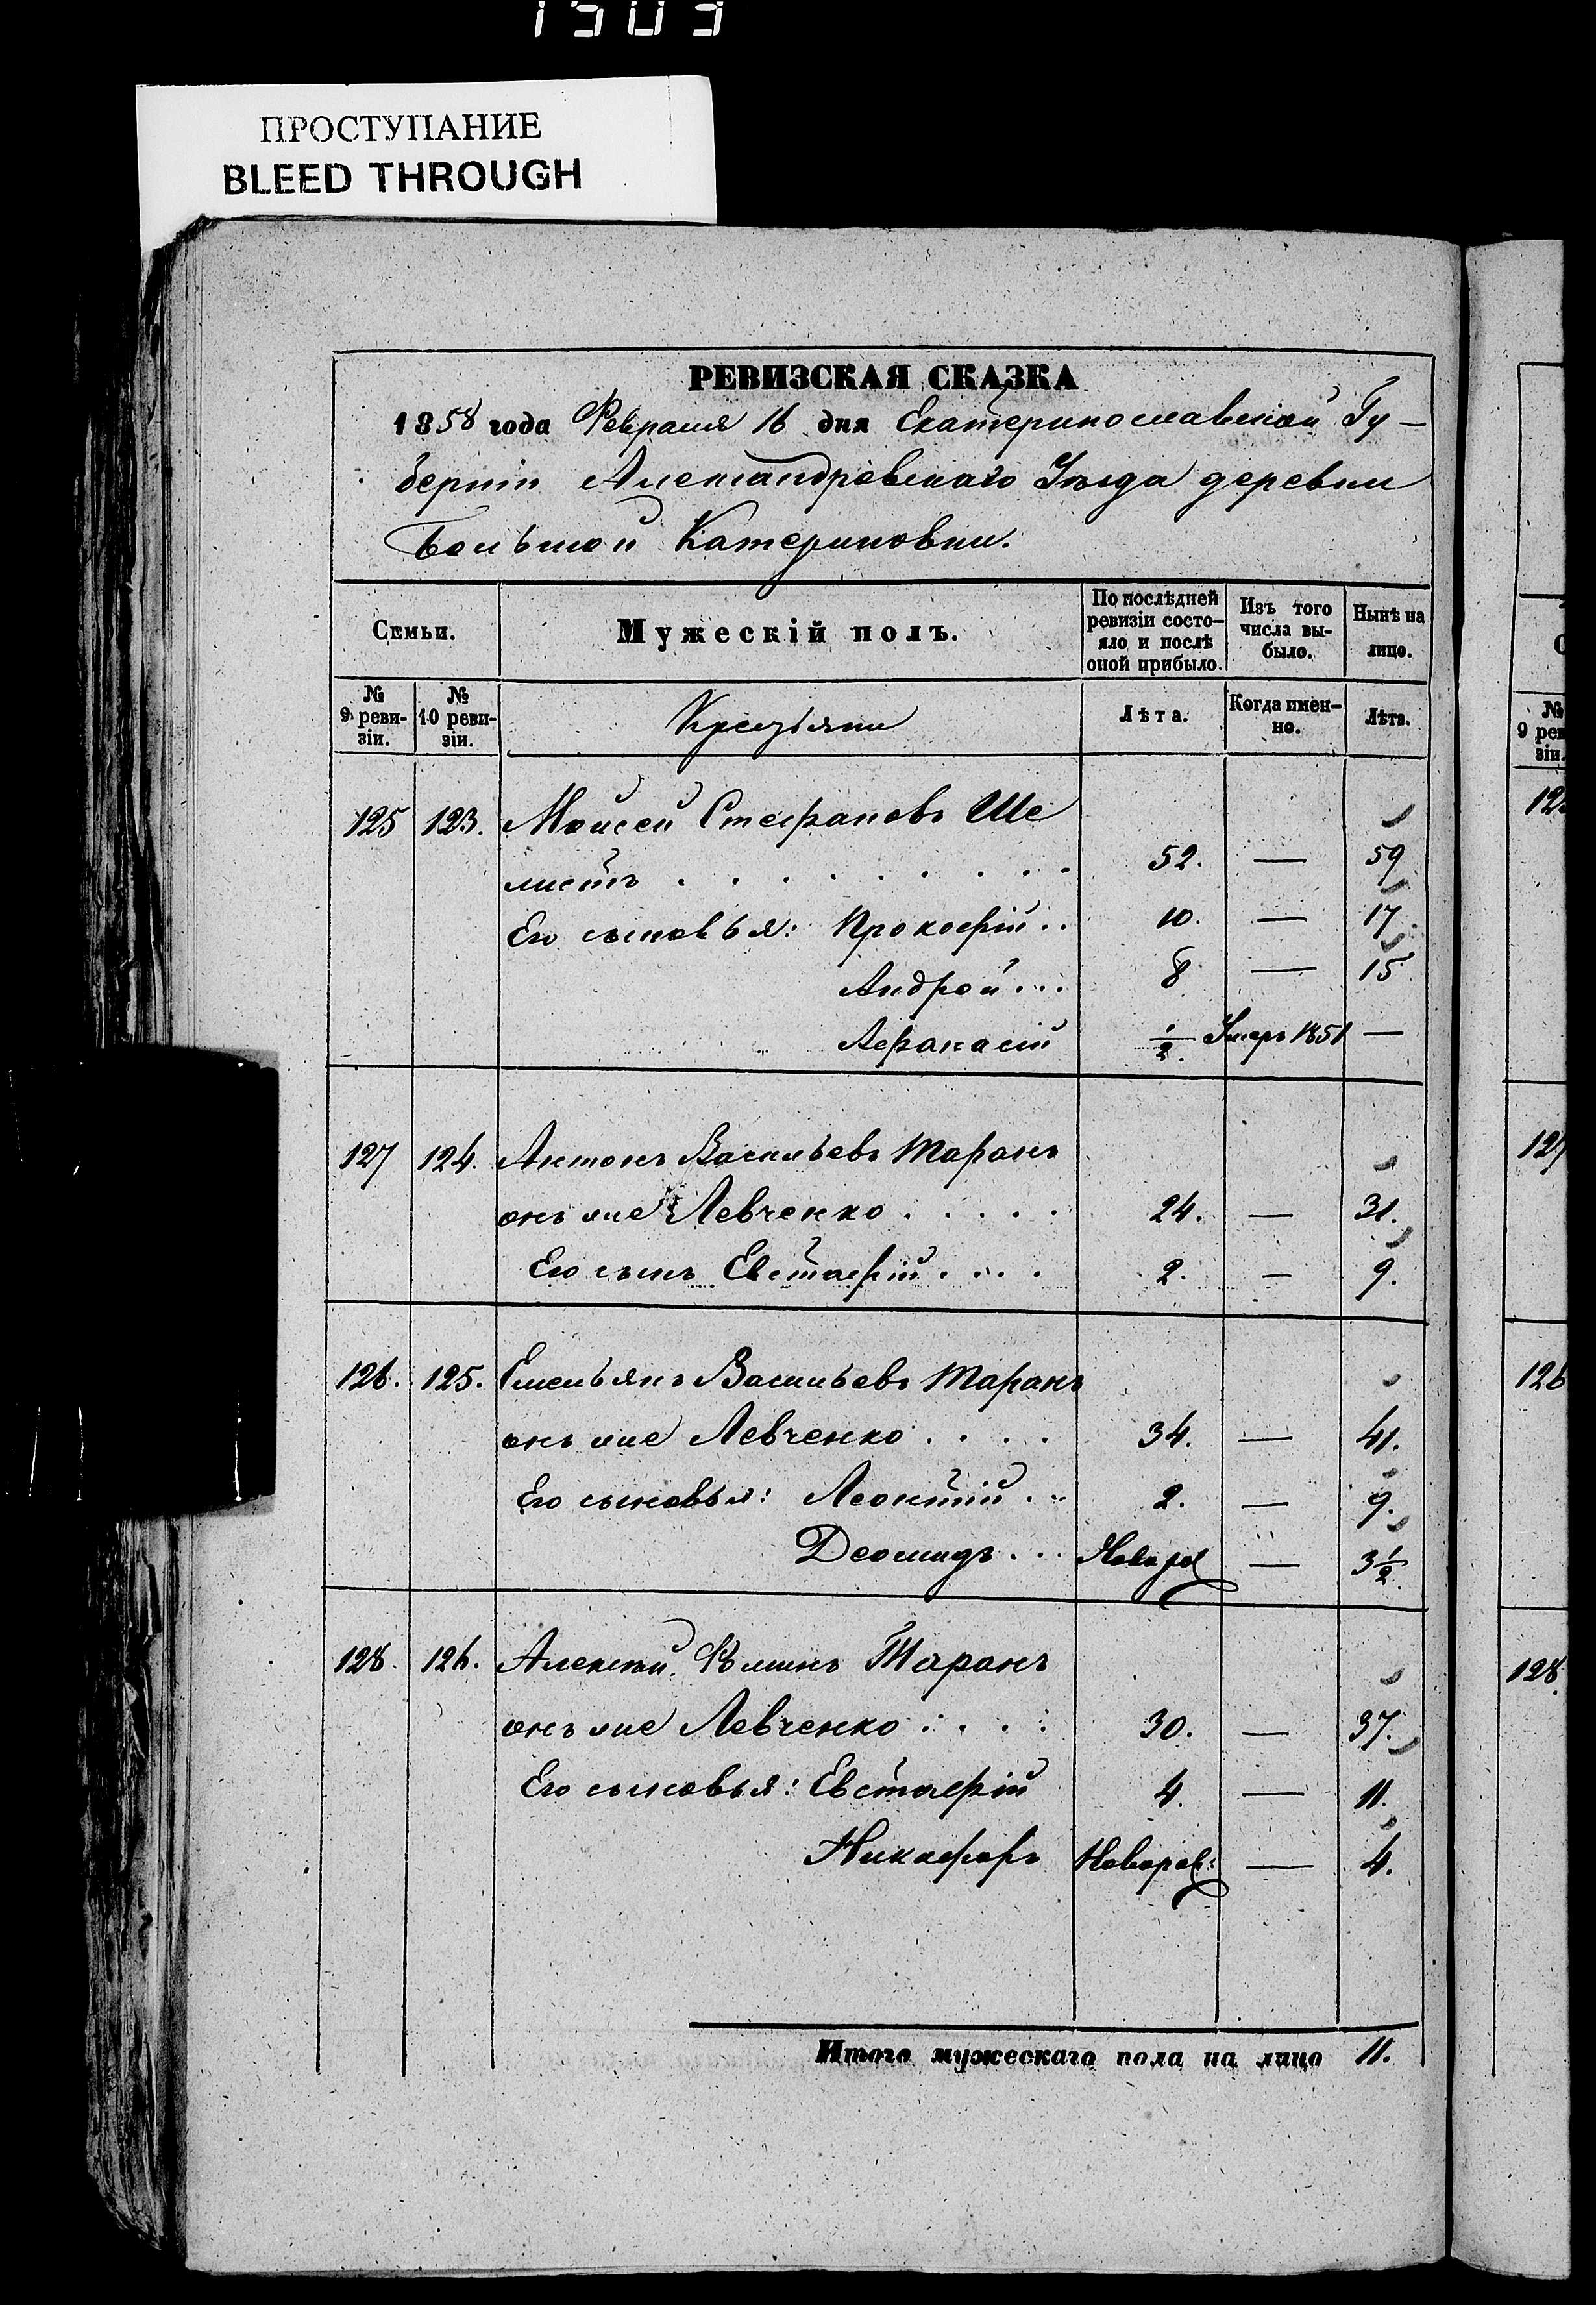 1503
ПРОСТУПАНИЕ
BLEED THROUGH
РЕВИЗСКАЯ СКАЗКА
1858 года Февраля 16 дня Екатеринославской Гу-
берніи Александровскаго Уѣзда деревни
Большой Катериновки.
Семьи. Мужескій полъ. По послѣдней ревизіи состо-яло и послѣ оной прибыло. Изъ того числа вы-было. Нынѣ на лицо.
№ 9 реви-зіи. № 10 реви-зіи. Крестьяни Лѣта. Когда имен-но. Лѣта.
125 123. Моисей Стефановъ Ше
листъ . . . . . . . . 52. — 59
Его сыновья: Прокофій .. 10. — 17.
Андрей ... 8 — 15
Афанасій 1/2. Умеръ 1851 —
127 124. Антонъ Васильевъ Таранъ
онъ же Левченко . . . . . 24. — 31.
Его сынъ Евстафій . . . . 2. — 9.
126. 125. Емельянъ Васильевъ Таранъ
онъ же Левченко . . . . 34. — 41.
Его сыновья: Леонтій . .. 2. — 9.
Деомидъ ... Новоро — 3 1/2
128. 126. Алексѣй Таранъ
онъ же Левченко : . . : 30. — 37.
Его сыновья: Евстафій 4. — 11.
Никифоръ Новорож: — 4.
Итого мужескаго пола на лицо 11.
№
9 рев
зіи.
127
126
128.